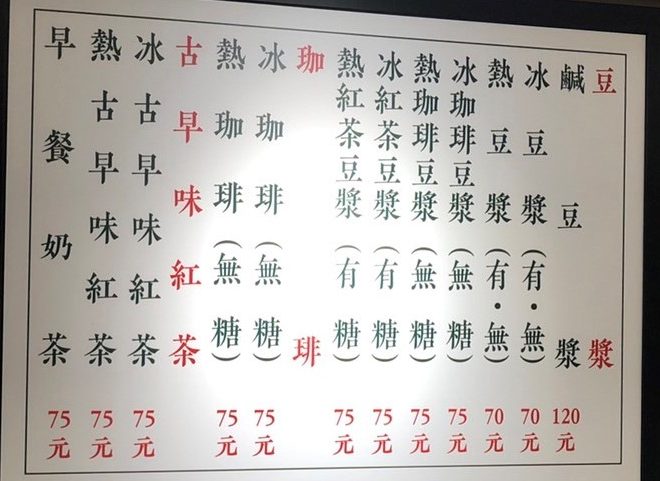 豆漿
鹹豆漿 120元
冰豆漿(有·無) 70元
熱豆漿(有·無) 70元
冰珈琲豆漿(無糖) 75元
熱珈琲豆漿(無糖) 75元
冰紅茶豆漿(有糖) 75元
熱紅茶豆漿(有糖) 75元
珈琲
冰珈琲(無糖) 75元
熱珈琲(無糖) 75元
古早味紅茶
冰古早味紅茶 75元
熱古早味紅茶 75元
早餐奶茶 75元